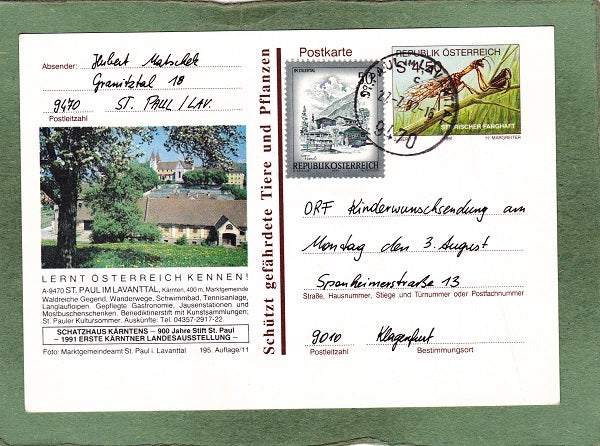 Absender: Hubert Matschek
Granitztal 18
9470 ST. PAUL / LAV.
Postleitzahl
LERNT ÖSTERREICH KENNEN!
A-9470 ST. PAUL IM LAVANTTAL, Kärnten, 400 m, Marktgemeinde
Waldreiche Gegend, Wanderwege, Schwimmbad, Tennisanlage,
Langlaufloipen. Gepflegte Gastronomie, Jausenstationen und
Mostbuschenschenken. Benediktinerstift mit Kunstsammlungen;
St. Pauler Kultursommer. Auskünfte: Tel. 04357-2917-22.
SCHATZHAUS KÄRNTENS – 900 Jahre Stift St. Paul
– 1991 ERSTE KÄRNTNER LANDESAUSSTELLUNG –
Foto: Marktgemeindeamt St. Paul i. Lavanttal 195. Auflage/11
Schützt gefährdete Tiere und Pflanzen
Postkarte
50g
REPUBLIK ÖSTERREICH
REPUBLIK ÖSTERREICH
S 4.50
STEIRISCHER FANGHAFT
H. MARGREITER
9470
ORF Kinderwunschsendung am
Montag den 3. August
Spanheimerstraße 13
Straße, Hausnummer, Stiege und Türnummer oder Postfachnummer
9010 Klagenfurt
Postleitzahl Bestimmungsort